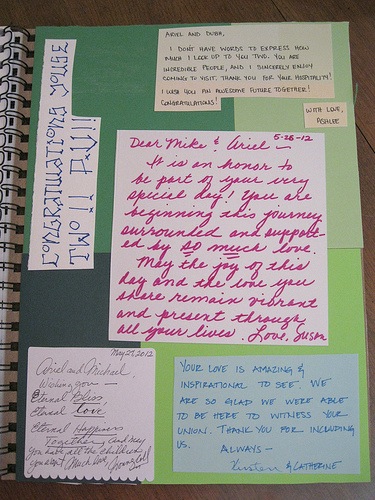 ARIEL AND DUBH,
I DON'T HAVE WORDS TO EXPRESS HOW
MUCH I LOOK UP TO YOU TWO. YOU ARE
INCREDIBLE PEOPLE, AND I SINCERELY ENJOY
COMING TO VISIT. THANK YOU FOR YOUR HOSPITALITY!
I WISH YOU AN AWESOME FUTURE TOGETHER!
CONGRATULATIONS!
WITH LOVE,
ASHLEE
CONGRATUATIONS YOUSE
TWO !!
5-26-12
Dear Mike & Ariel —
It is an honor to
be part of your very
special day! You are
beginning this journey
surrounded and support-
ed by so much love.
May the joy of this
day and the love you
share remain vibrant
and present through
all your lives. Love, Susan
May 27, 2012
Ariel and Michael,
Wishing you —
Eternal Bliss
Eternal Love
Eternal Happiness
Together and may
you have all the children
you want Much love,
YOUR LOVE IS AMAZING &
INSPIRATIONAL TO SEE. WE
ARE SO GLAD WE WERE ABLE
TO BE HERE TO WITNESS YOUR
UNION. THANK YOU FOR INCLUDING
US.
ALWAYS –
Kirsten & CATHERINE